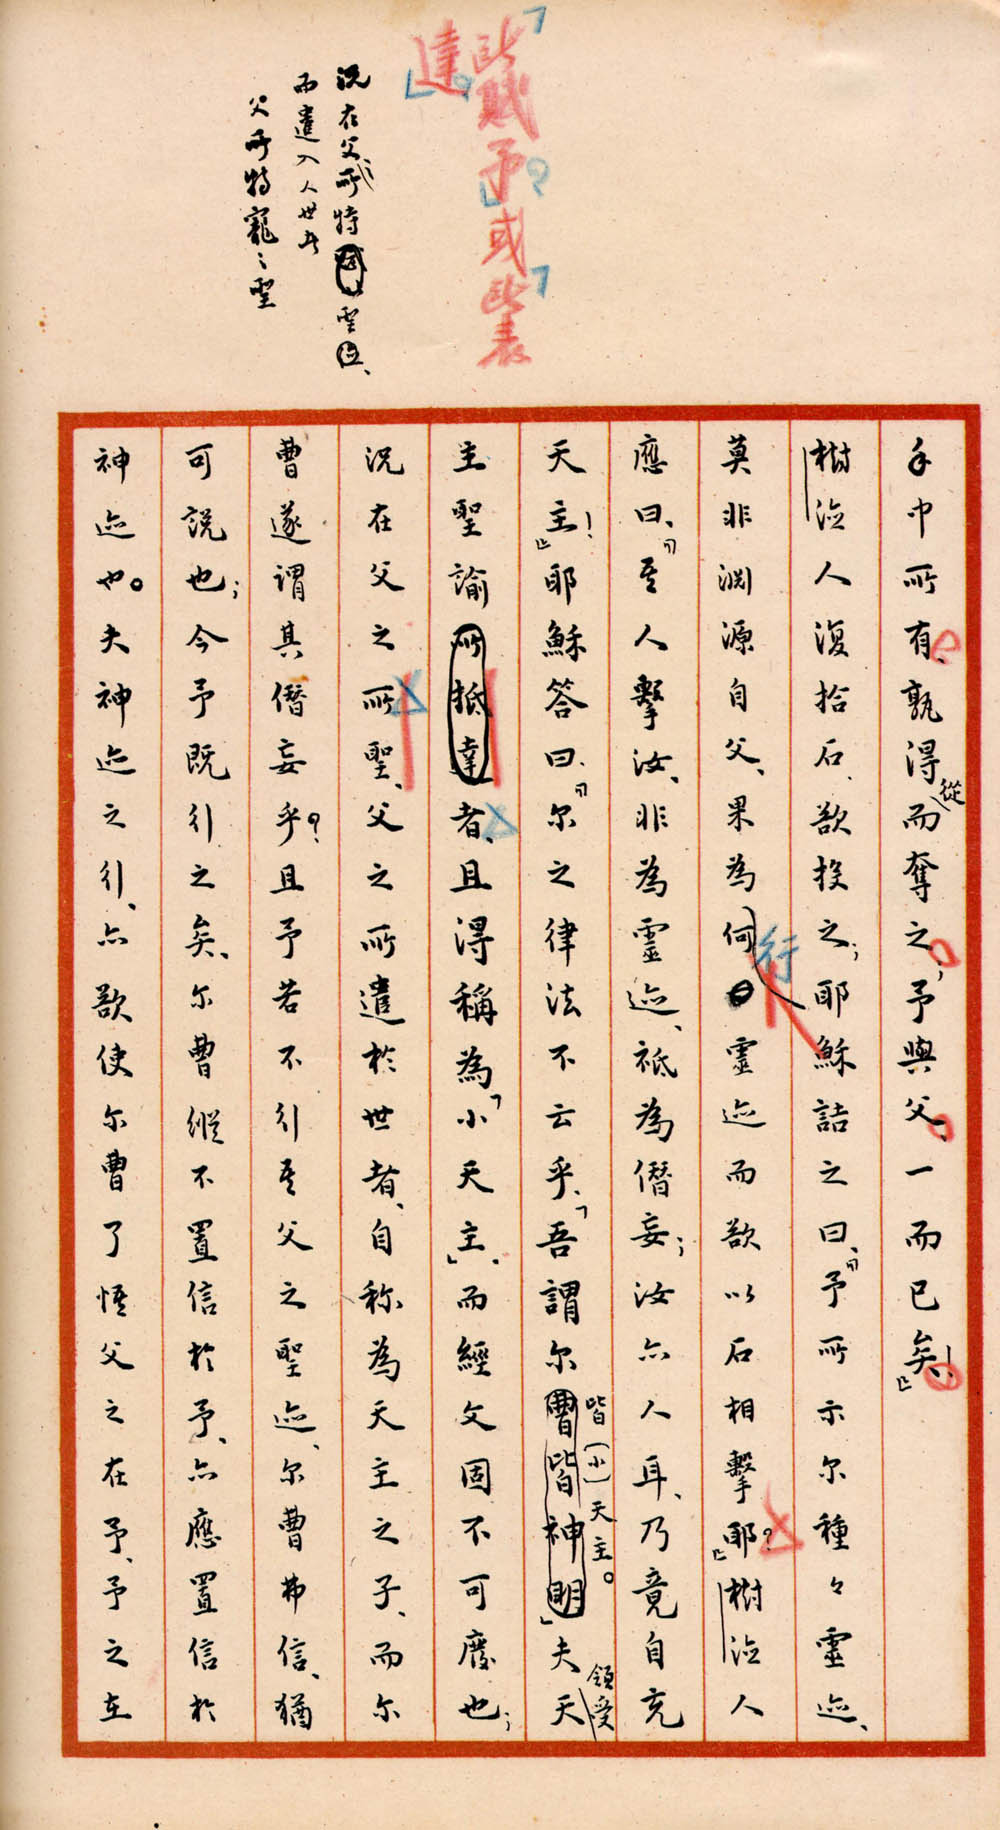 「賦予」?或「表
達」?
況在父所特聖、
而遣入人世者
父所特寵々聖
手中所有、孰得而奪之;予與父、一而已矣!』
從
樹德人復拾石、欲投之;耶穌詰之曰、『予所示尔種々靈迹、
莫非淵源自父、果為何靈迹而欲以石相擊耶?』樹德人
行
應曰、『吾人擊汝、非為靈迹、祗為僭妄;汝亦人耳、乃竟自充
天主!』耶穌答曰、『尔之律法不云乎、「吾謂尔曹皆神明」夫天
皆(小)天主。
領受
主聖諭所抵達者、且得稱為「小天主」、而經文固不可廢也;
況在父之所聖、父之所遣於世者、自称為天主之子、而尔
曹遂謂其僭妄乎?且予若不行吾父之聖迹、尔曹弗信、猶
可說也;今予既行之矣、尔曹縱不置信於予、亦應置信於
神迹也。夫神迹之行、亦欲使尔曹了悟父之在予、予之在